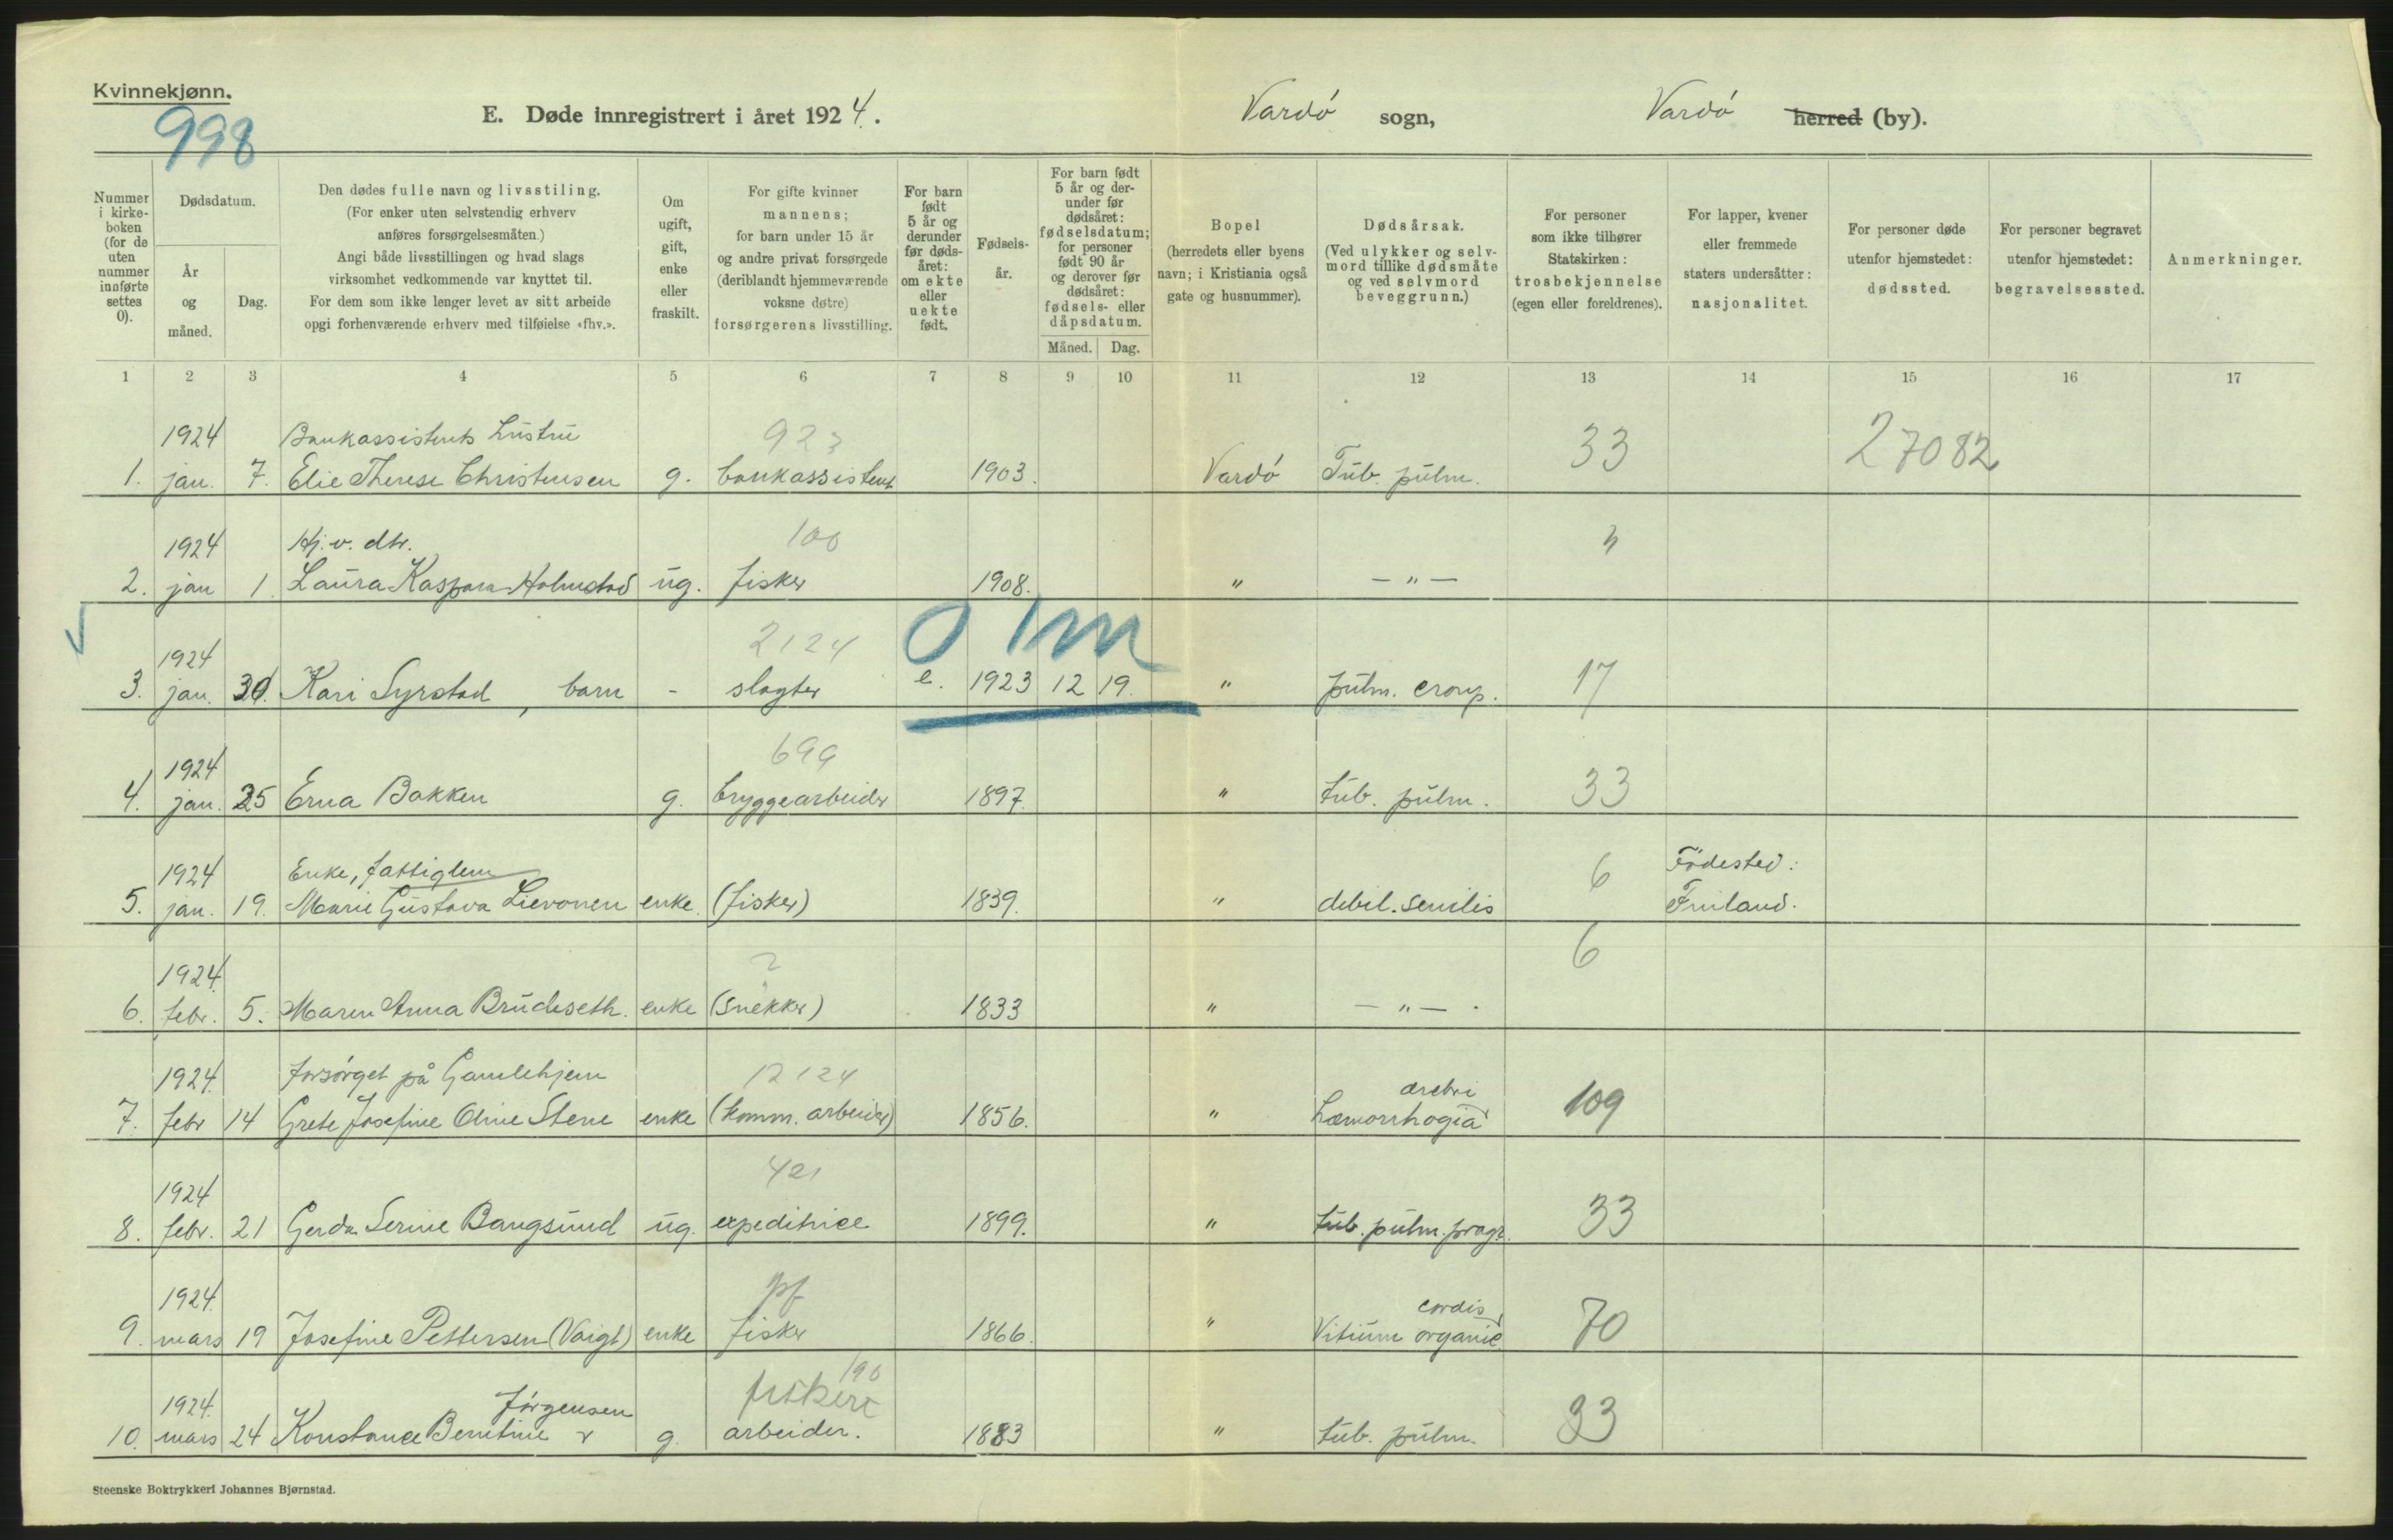 Kvinnekjønn.
998
E. Døde innregistrert i året 1924.
Vardø sogn,
Vardø herred (by).
Nummer i kirke-boken (for de uten nummer innførte settes 0).
Dødsdatum.
År og måned.
Dag.
Den dødes fulle navn og livsstiling.
(For enker uten selvstendig erhverv
anføres forsørgelsesmåten.)
Angi både livsstillingen og hvad slags
virksomhet vedkommende var knyttet til.
For dem som ikke lenger levet av sitt arbeide
opgi forhenværende erhverv med tilføielse «fhv.».
Om ugift, gift, enke eller fraskilt.
For gifte kvinner
mannens;
for barn under 15 år
og andre privat forsørgede
(deriblandt hjemmeværende
voksne døtre)
forsørgerens livsstilling.
For barn født 5 år og derunder før døds-året: om ekte eller uekte født.
Fødsels-år.
For barn født 5 år og der-under før dødsåret: fødselsdatum; for personer født 90 år og derover før dødsåret: fødsels- eller dåpsdatum.
Måned. Dag.
Bopel
(herredets eller byens
navn; i Kristiania også
gate og husnummer).
Dødsårsak.
(Ved ulykker og selv-
mord tillike dødsmåte
og ved selvmord
beveggrunn.)
For personer
som ikke tilhører
Statskirken:
trosbekjennelse
(egen eller foreldrenes).
For lapper, kvener
eller fremmede
staters undersåtter:
nasjonalitet.
For personer døde
utenfor hjemstedet:
dødssted.
For personer begravet
utenfor hjemstedet:
begravelsessted.
Anmerkninger.
1 2 3 4 5 6 7 8 9 10 11 12 13 14 15 16 17
1924 Bankassistents hustru 923 33 27082
1. jan. 7. Elie Therese Christensen g. bankassistent 1903. Vardø Tub. pulm.
1924 Hj. v. dtr. 100 "
2. jan 1. Laura Kaspara Holmstad ug. fisker 1908. " — " —
0 1m
1924 2124 17
3. jan. 30. Kari Syrstad, barn - slagter e. 1923 12 19. " pulm. croup.
1924 699 33
4. jan. 25 Erna Bakken g. bryggearbeider 1897. " tub. pulm.
1924 Enke, fattiglem 6 Fødested:
5. jan. 19. Marie Gustava Lievonen enke. (fisker) 1839. " debil. senilis Finland.
1924. 2 6
6. febr. 5. Maren Anna Brudeseth. enke (snekker) 1833 " — " —
1924. Forsørget på Gamlehjem 12124 cerebri 109
7. febr 14 Grete Josefine Oline Stene enke (komm. arbeider) 1856. " hæmorrhagia
1924 421 33
8. febr. 21 Gerda Serine Bangsund ug. expeditrice 1899. " tub. pulm. progr.
1924. pf cordis 70
9. mars 19 Josefine Pettersen (Voigt) enke fisker 1866. " Vitium organic
1924. Jørgensen fiskeri 190 33
10. mars 24 Konstance Berntine g. arbeider. 1883 " tub. pulm.
Steenske Boktrykkeri Johannes Bjørnstad.